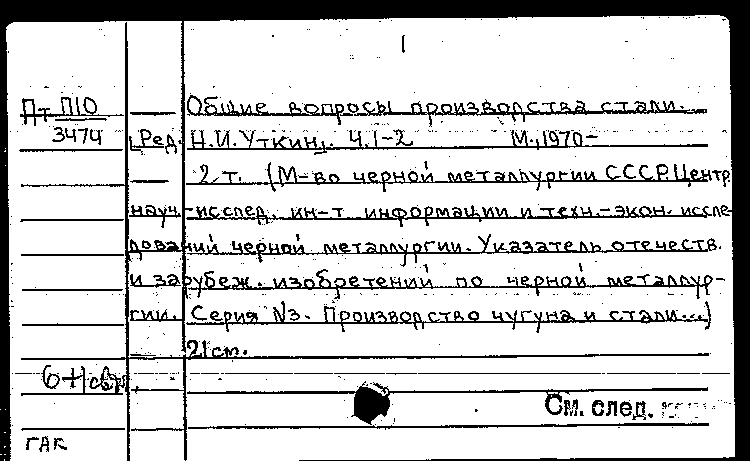 1
Пт П10 Общие вопросы производства стали.
3474 [Ред. Н.И.Уткин]. Ч.1-2 М., 1970-
2 т. (М-во черной металлургии СССР. Центр.
науч.-исслед. ин-т информации и техн.-экон. иссле-
дований черной металлургии. Указатель отечеств.
и зарубеж. изобретений по черной металлур-
гии. Серия №3. Производство чугуна и стали...)
21 см.
6+1
См. след.
ГАК